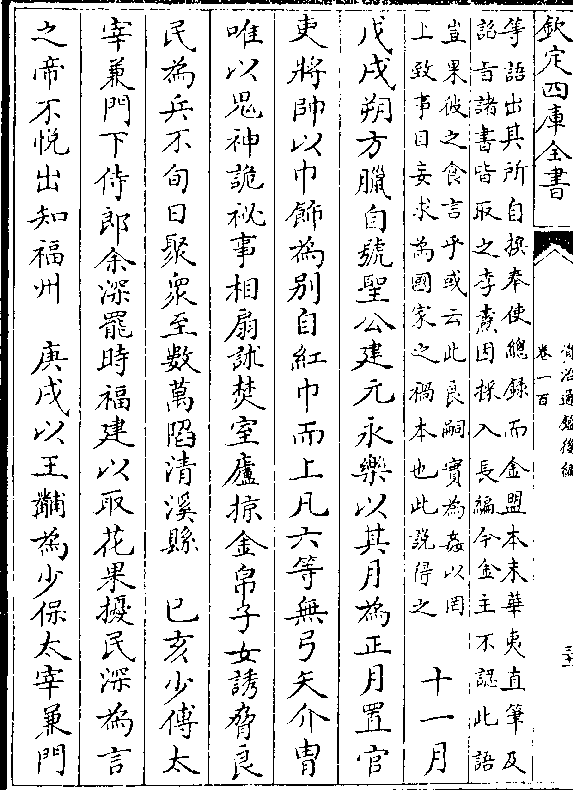 欽定四庫全書
資治通鑑後編
卷一百
三十
等語出其所自撰奉使總録而金盟本末華夷直筆及
詔旨諸書皆取之李燾因採入長編今金主不認此語
豈果彼之食言乎或云此良嗣實為姦以罔
上致事日妄求為國家之禍本也此說得之
十一月
戊戌朔方臘自號聖公建元永樂以其月為正月置官
吏將帥以巾飾為别自紅巾而上凡六等無弓矢介胄
唯以鬼神詭祕事相扇訹焚室廬掠金帛子女誘脅良
民為兵不旬日聚衆至數萬陷清溪縣　已亥少傅太
宰兼門下侍郎余深罷時福建以取花果擾民深為言
之帝不悦出知福州　庚戌以王黼為少保太宰兼門